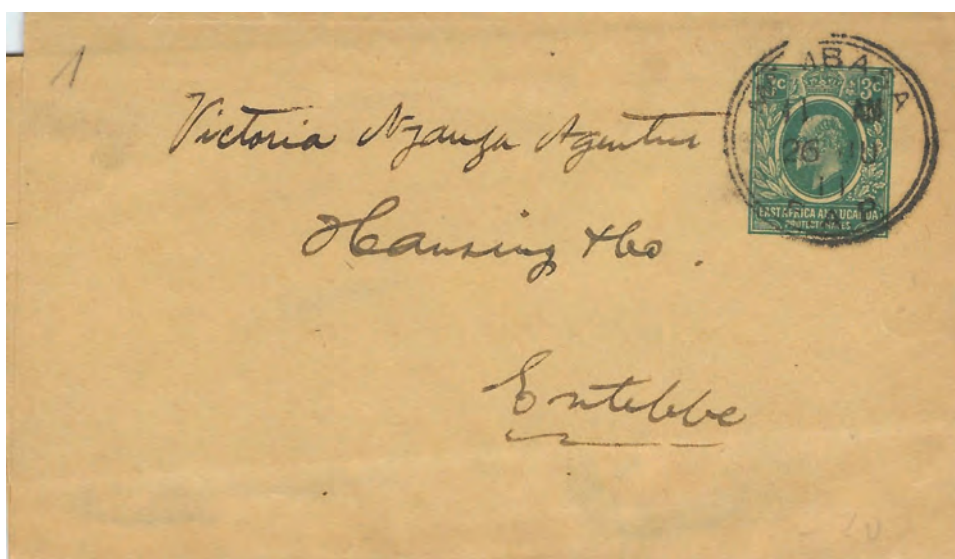 1
Victoria Nyanza Agentur
Hansing & Co.
Entebbe
3c
11 AM
26 JU
11
EAST AFRICA AND UGANDA
PROTECTORATES